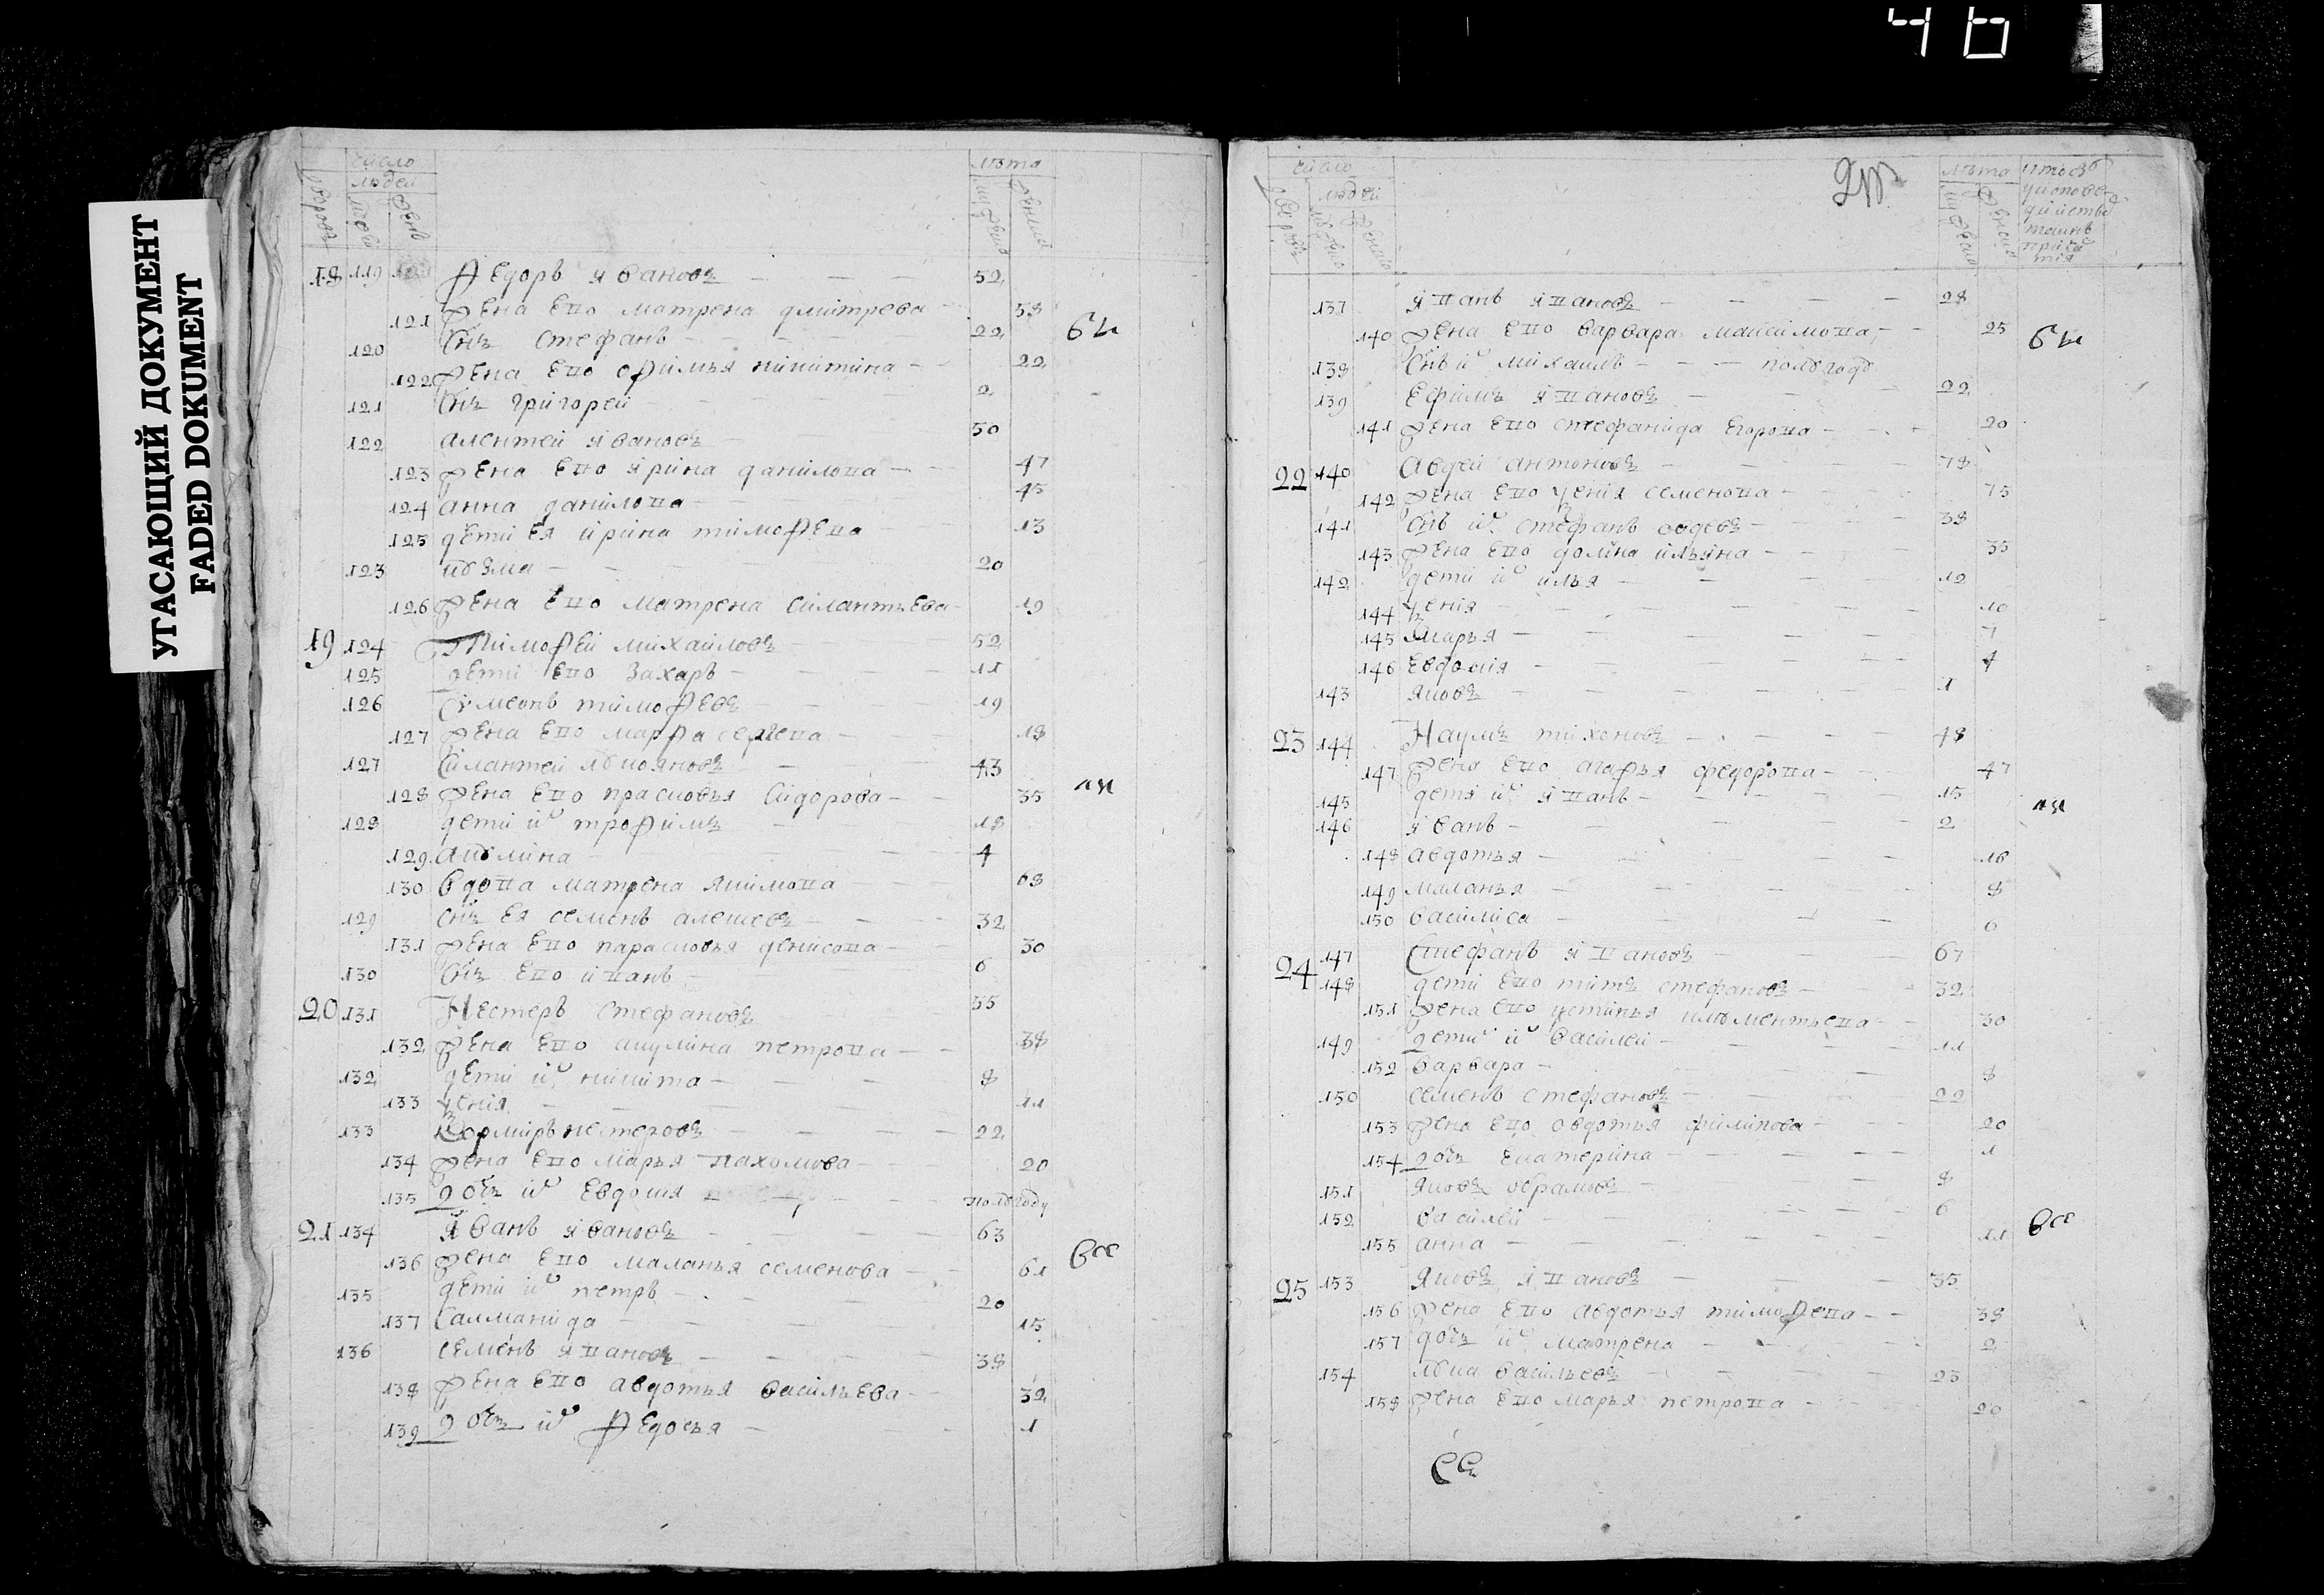 46
УТАСАЮЩИЙ ДОКУМЕНТ
FADED DOKUMENT
число лѣта
людей
18 119 Федоръ Ивановъ 52
121 жена ево матрена дмитрева 58
120 Снъ стефанъ 22
122 жена ево офимья никитина 22
121 Снъ григорей 2
122 алентей Ивановъ 50
123 жена ево Ирина данилова 47
124 анна данилова 45
125 дети ея ирина тимофева 13
123 кузма 20
126 жена ево матрена силантьева 19
19 124 Тимофей михаиловъ 52
125 дети ево захаръ 11
126 Симеонъ тимофевъ 19
127 жена ево марфа сергева 18
127 Силантей лукояновъ 43
128 жена ево прасковья Сидорова 35
128 дети их трофимъ 18
129 акулина 4
130 вдова матрена якимова 68
129 снъ ея семенъ алексевъ 32
131 жена ево парасковья денисова 30
130 Снъ ево иванъ 6
20 131 Нестеръ стефановъ 55
132 жена ево акулина петрова 38
132 дети их никита 8
133 ксения 11
133 нестеровъ 22
134 жена ево марья пахомова 20
135 дочь их Евдокия полугоду
21 134 Иванъ Ивановъ 63
136 жена ево маланья семенова 61 все
135 дети их петръ 20
137 Саламанида 15
136 семенъ Ивановъ 38
138 жена ево авдотья васильева 32
139 дочь их Федосья 1
число лѣта
людей
137 Иванъ Ивановъ 28
140 жена ево варвара максимова 25
138 Снъ их михаилъ полугоду
139 Ефимъ Ивановъ 22
141 жена ево стефанида Егорова 20
22 140 Авдей антоновъ 78
142 жена ево ксения семенова 75
141 Снъ их стефанъ авдевъ 38
143 жена ево домна ильина 35
142 дети их илья 12
144 ксения 10
145 Марья 7
146 Евдокия 4
143 яковъ 1
23 144 Наумъ тихоновъ 48
147 жена ево агафья федорова 47
145 дети их Иванъ 15
146 Иванъ 2
148 авдотья 16
149 маланья 8
150 василиса 6
24 147 Стефанъ Ивановъ 67
148 дети ево титъ стефановъ 32
151 жена ево устинья клементьева 30
149 дети их василей 11
152 варвара 8
150 семенъ стефановъ 22
153 жена ево овдотья филипова 20
154 дочь Екатерина 1
151 яковъ абрамовъ 8
152 василей 6
155 анна 11 все
25 153 Яковъ Ивановъ 35
156 жена ево авдотья тимофева 38
157 дочь их матрена 2
154 лука васильевъ 23
158 жена ево марья петрова 20